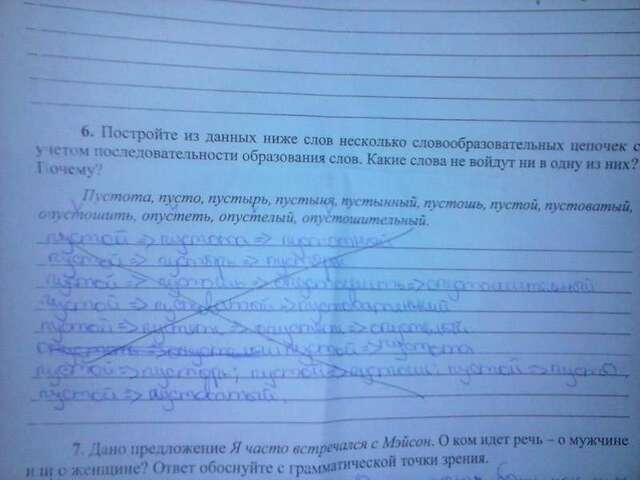 6. Постройте из данных ниже слов несколько словообразовательных цепочек с
учетом последовательности образования слов. Какие слова не войдут ни в одну из них?
Почему?
Пустота, пусто, пустырь, пустыня, пустынный, пустошь, пустой, пустоватый,
опустошить, опустеть, опустелый, опустошительный.
пустой => пустота =>
пустой => пустырь =>
пустой => пустошь => опустошить => опустошительный
пустой =>
пустой => => опустеть => опустелый
пустой => пустота
пустой => пустырь; пустой => пустошь; пустой => пусто
пустой =>
7. Дано предложение Я часто встречался с Мэйсон. О ком идет речь – о мужчине
или о женщине? Ответ обоснуйте с грамматической точки зрения.